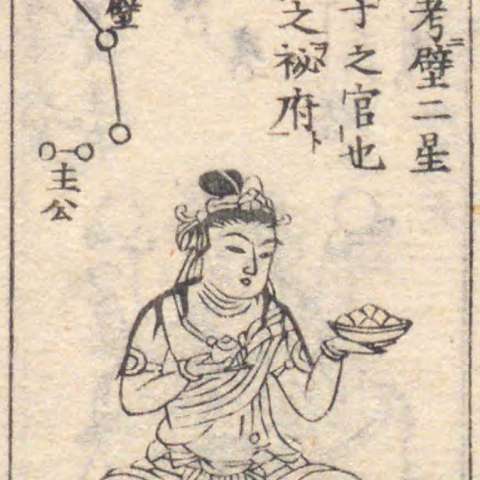 考壁二星
于之官也
之祕府
壁
主公